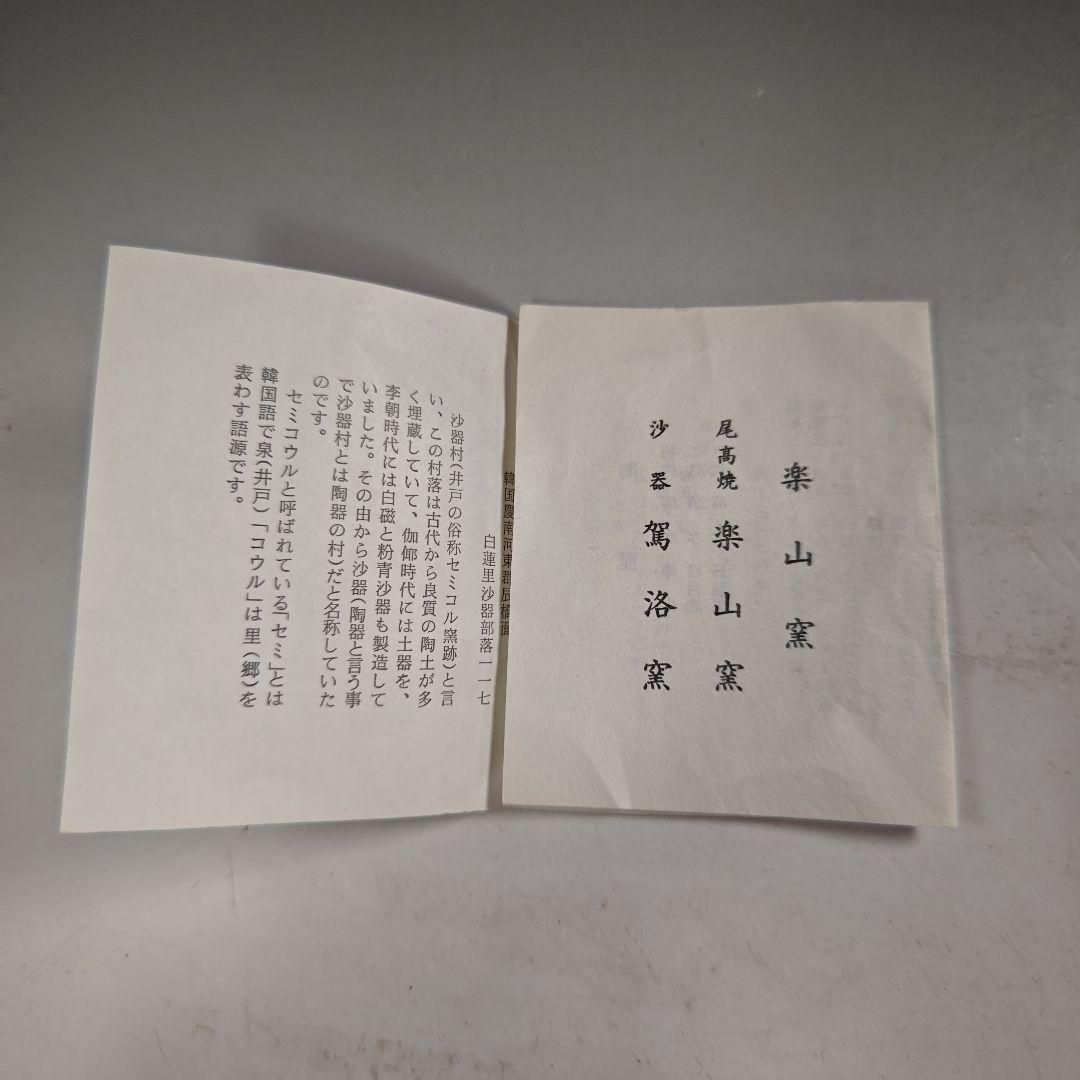 楽山窯
尾高焼 楽山窯
沙器 駕洛窯
韓国慶南河東郡辰橋面
白蓮里沙器部落一一七
沙器村(井戸の俗称セミコル窯跡)と言
い、この村落は古代から良質の陶土が多
く埋蔵していて、伽倻時代には土器を、
李朝時代には白磁と粉青沙器も製造して
いました。その由から沙器(陶器と言う事
で沙器村とは陶器の村)だと名称していた
のです。
セミコウルと呼ばれている「セミ」とは
韓国語で泉(井戸)「コウル」は里(郷)を
表わす語源です。